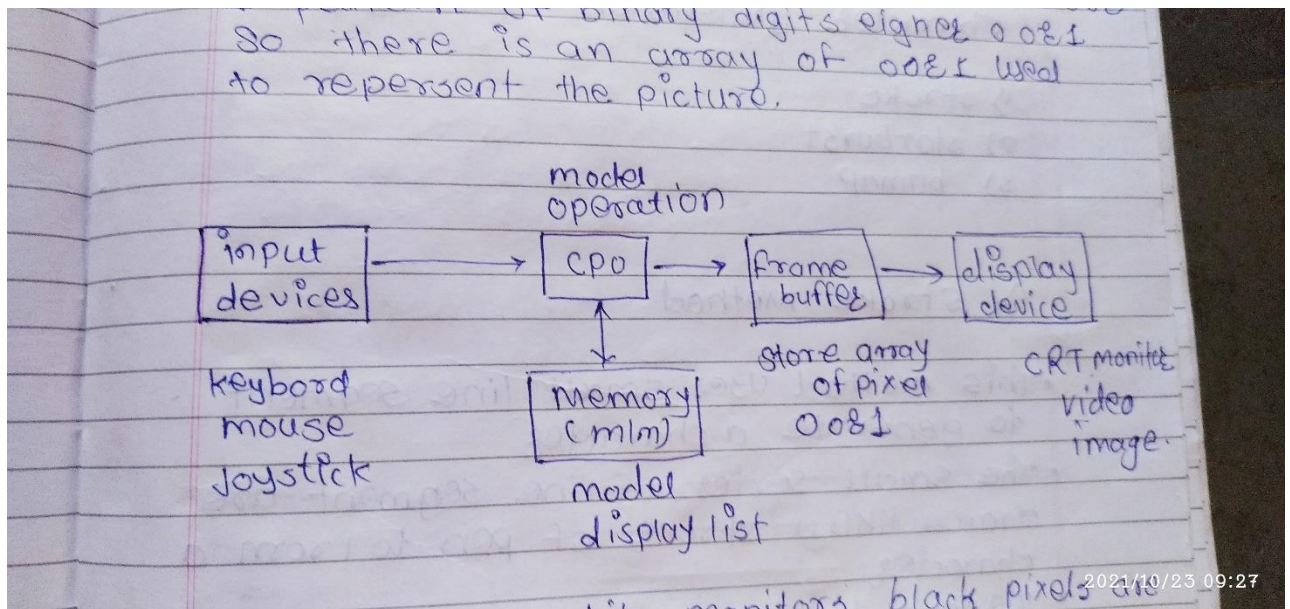 of binary digits eigher 0 or 1
So there is an array of 0 or 1 used
to repersent the picture.
model
operation
input
devices
CPU
frame
buffer
display
device
keybord
mouse
joystick
memory
(m/m)
store array
of pixel
0 or 1
CRT monitor
video
image.
model
display list
monitors black pixels are
2021/10/23 09:27